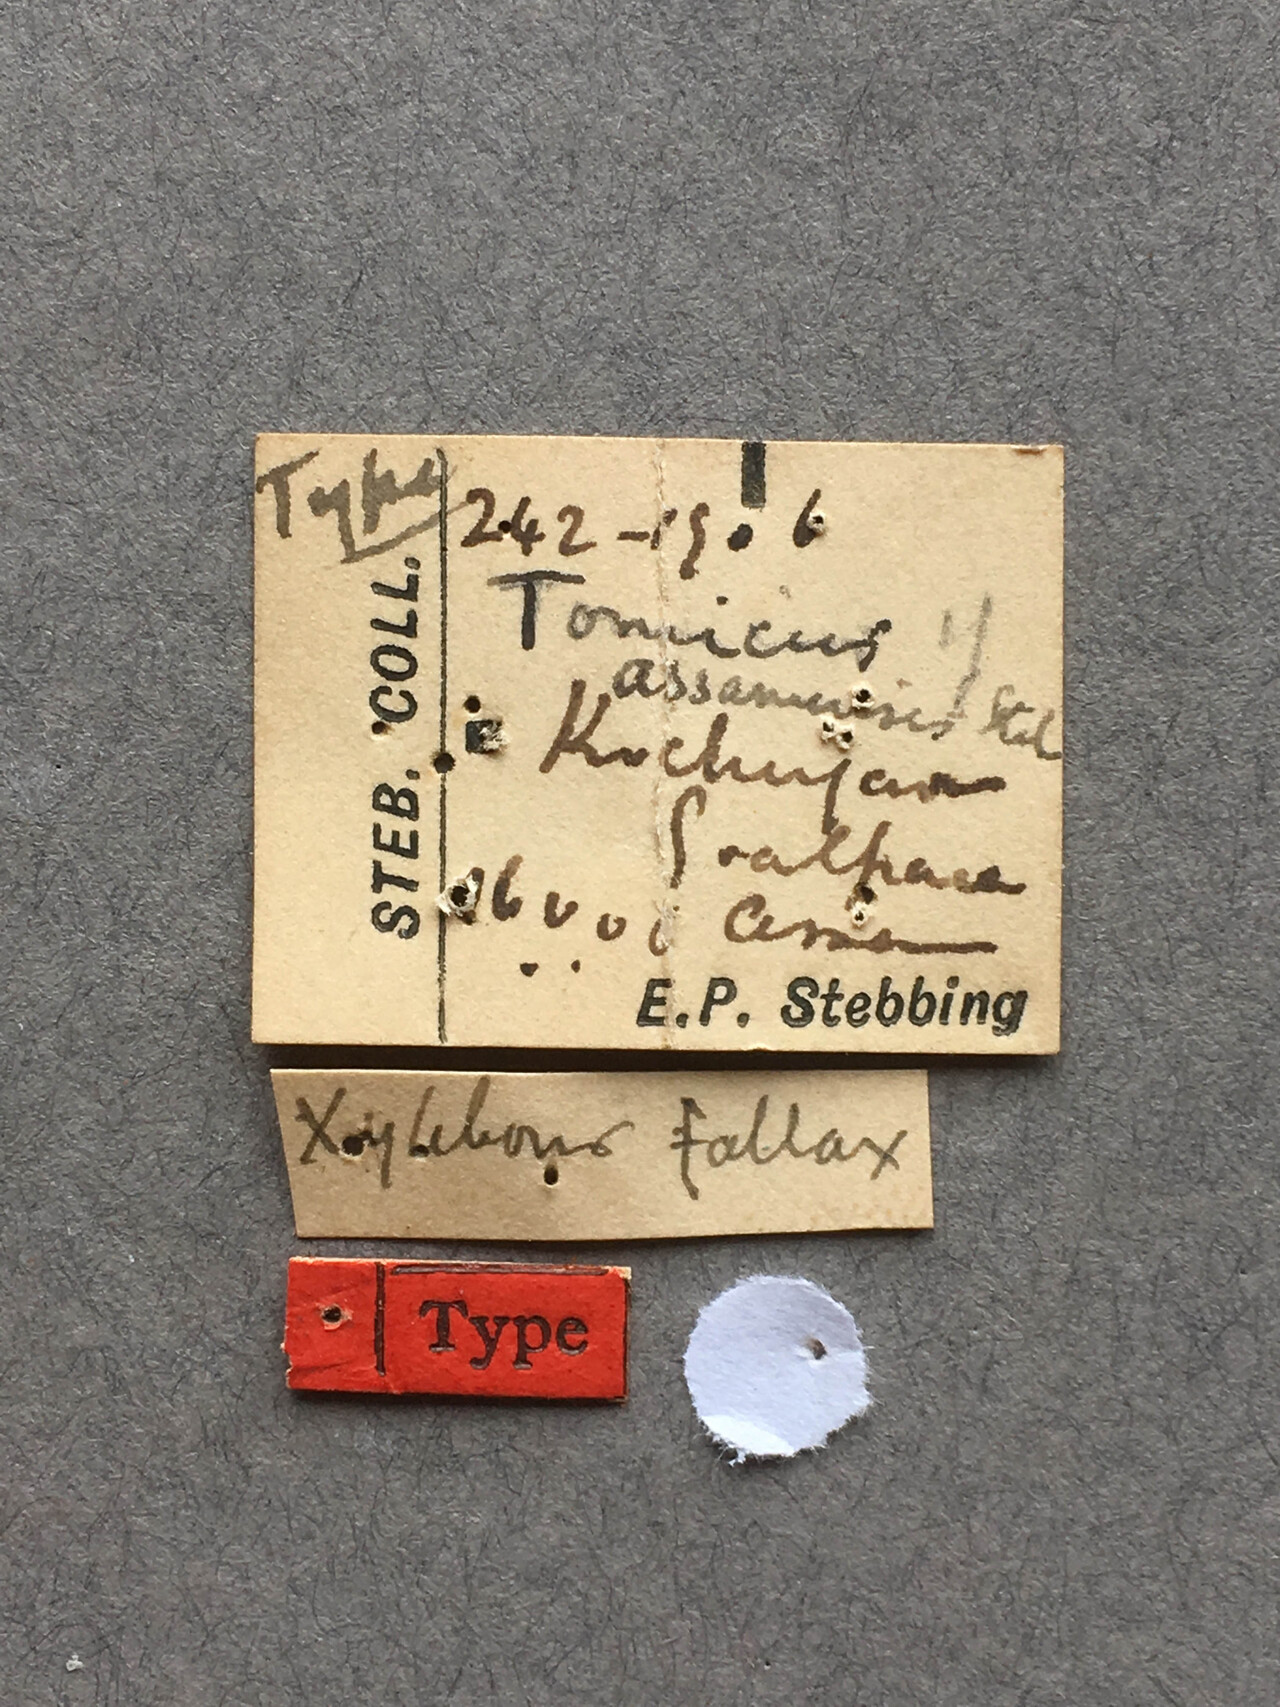 Type
STEB. COLL.
242-1906
Tomicus
assamensis Steb
Kochugaon
Goalpara
Assam
E.P. Stebbing
Xyleborus fallax
Type